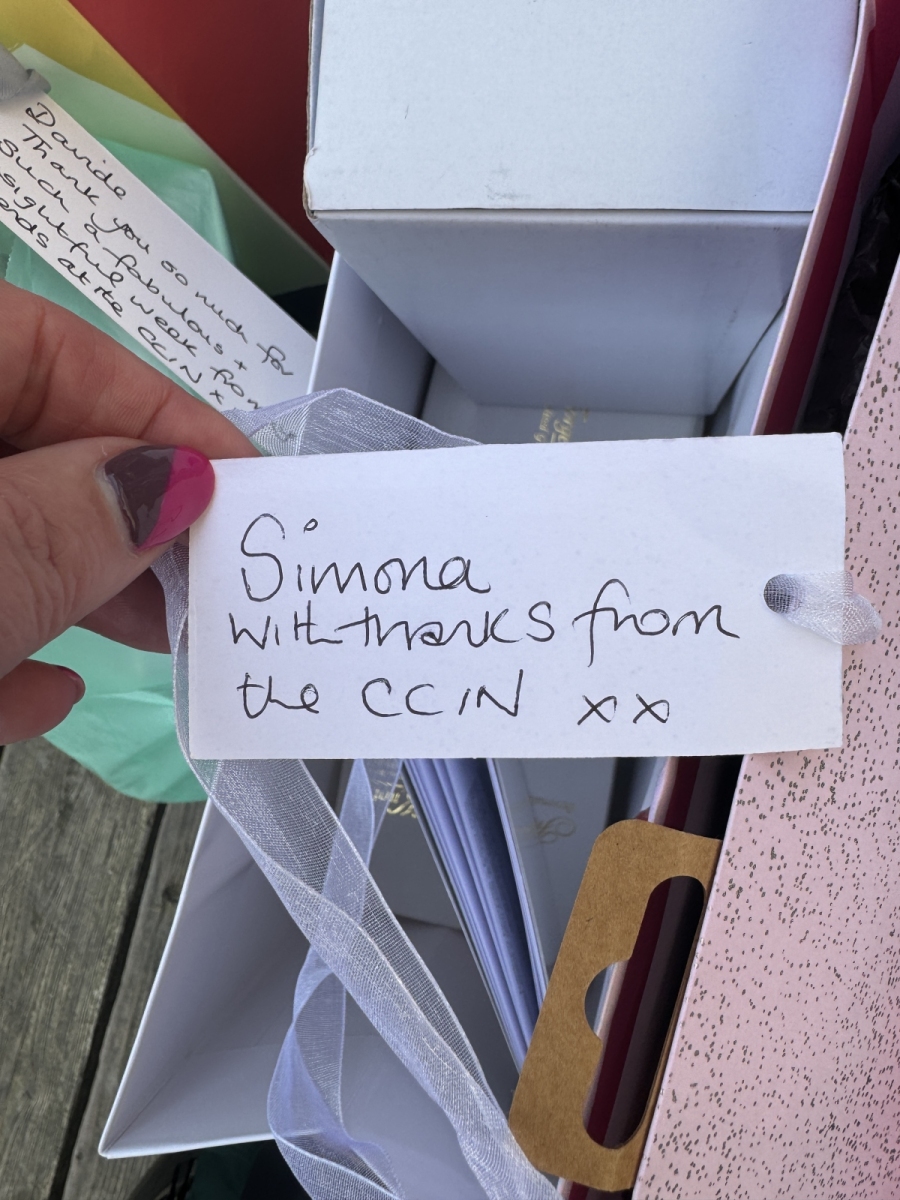 Davide
Thank you so much for
such a fabulous +
sightful week from
at the CCIN x
Simona
with thanks from
the CCIN xx